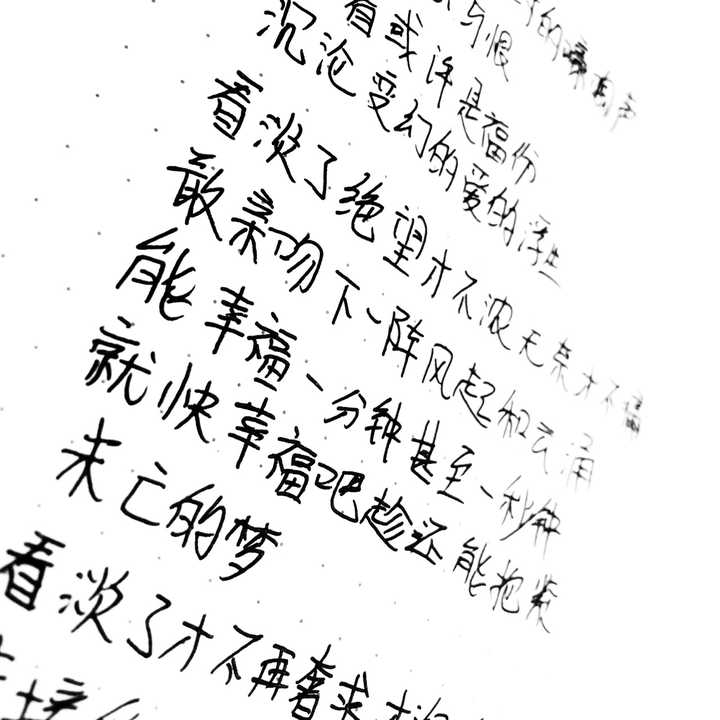 与恨
看或许是福份
沉沦变幻的爱的浮
看淡了绝望才不浓无奈才不痛
敢亲吻下一阵风起和云涌
能幸福一分钟甚至一秒钟
就快幸福吧趁还能抱紧
未亡的梦
看淡了才不再奢求才